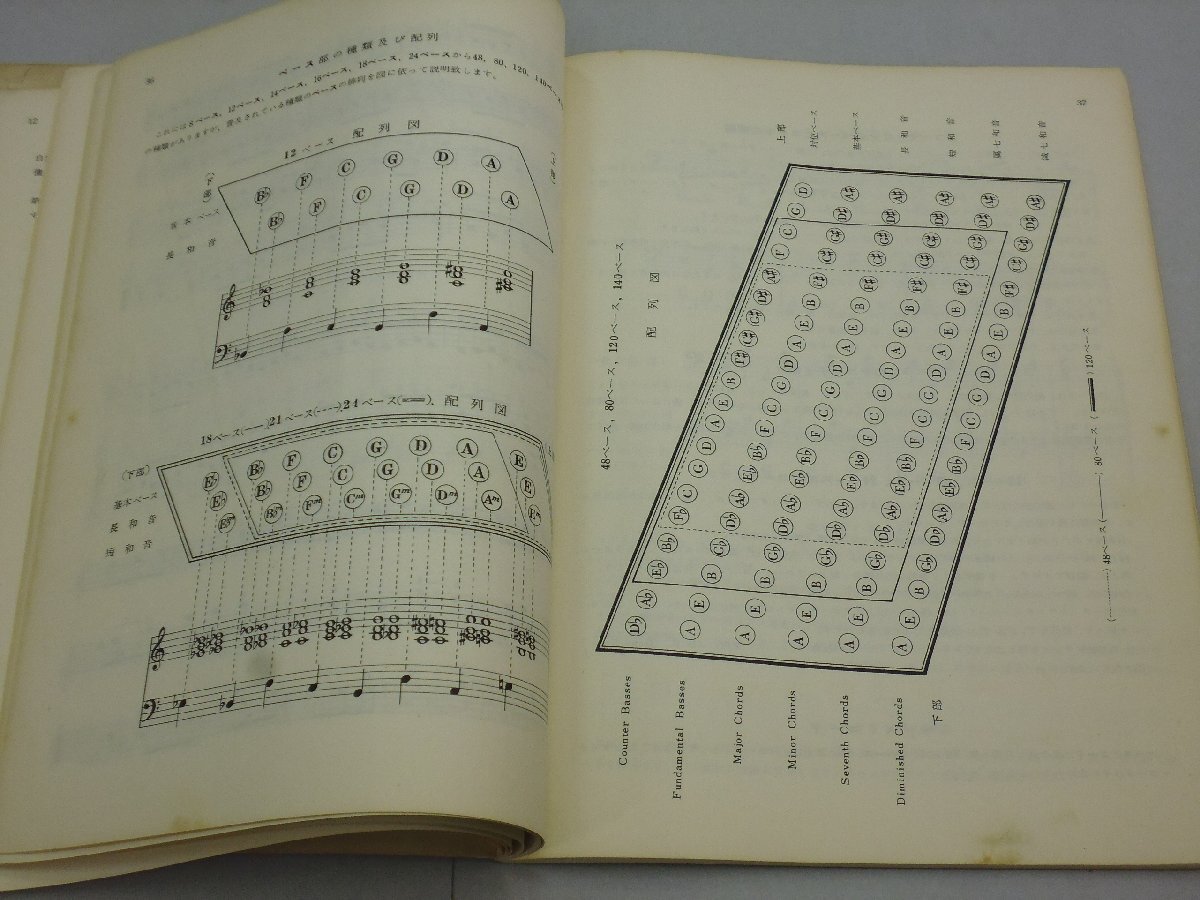 36
ベース部の種類及び配列
これには8ベース、12ベース、14ベース、16ベース、18ベース、24ベースから48、80、120、140ベース
の種類がありますが、普及されている種類のベースの節同を図に依って説明致します。
12ベース 配列図
(下部)
基本ベース
長和音
B♭ F C G D A
B♭ F C G D A
18ベース(——),21ベース(‥‥),24ベース(══), 配列図
(下部)
基本ベース
長和音
短和音
E♭ B♭ F C G D A E
E♭ B♭ F C G D A E
E♭m B♭m Fm Cm Gm Dm Am Em
35
48ベース, 80ベース, 120ベース, 140ベース
配列図
上部
対位ベース
基本ベース
長和音
短和音
属七和音
減七和音
D♭ A♭ E♭ B♭ F♭ C G D A E B F♯ C♯ G♯ D♯ A♯ F C G D
A E B G♭ D♭ A♭ E♭ B♭ F C G D A E B F♯ C♯ G♯ D♯ A♯
A E B G♭ D♭ A♭ E♭ B♭ F C G D A E B F♯ C♯ G♯ D♯ A♯
A E B G♭ D♭ A♭ E♭ B♭ F C G D A E B F♯ C♯ G♯ D♯ A♯
A E B G♭ D♭ A♭ E♭ B♭ F C G D A E B F♯ C♯ G♯ D♯ A♯
Counter Basses
Fundamental Basses
Major Chords
Minor Chords
Seventh Chords
Diminished Chords
下部
(‥‥‥‥) 48ベース (————) 80ベース (════) 120ベース